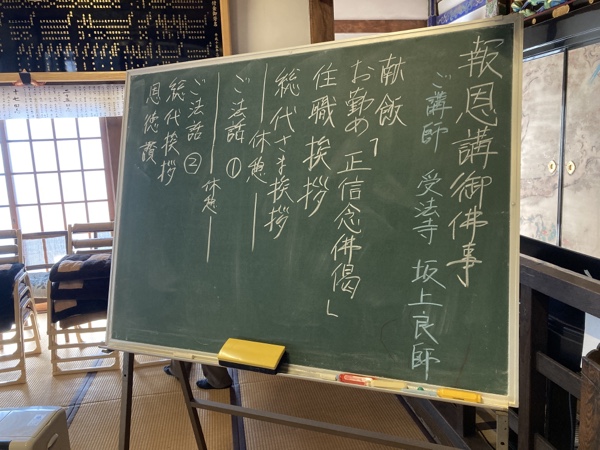 報恩講御佛事
ご講師 受法寺 坂上良師
献飯
お勤め「正信念佛偈」
住職挨拶
総代さま挨拶
―休憩―
ご法話①
―休憩―
ご法話②
総代挨拶
恩徳讃